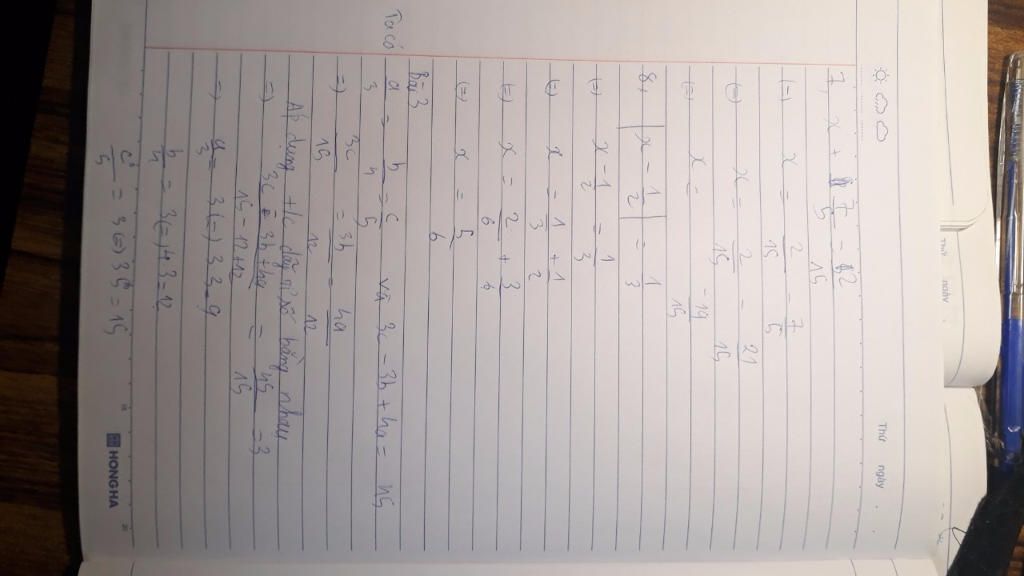 Thứ ngày
7, x + 7/5 = 2/15
(=) x = 2/15 - 7/5
(=) x = 2/15 - 21/15
(=) x = -19/15
8, |x - 1/2| = 1/3
(=) x - 1/2 = 1/3
(=) x = 1/3 + 1/2
(=) x = 2/6 + 3/6
(=) x = 5/6
Bài 3
Ta có a/3 = b/4 = c/5 và 3c - 3b + 4a = 45
=) 3c/15 = 3b/12 = 4a/12
Áp dụng t/c dãy tỉ số bằng nhau
=) 3c - 3b + 4a / 15 - 12 + 12 = 45/15 = 3
=) a/3 = 3 (=) 3.3 = 9
b/4 = 3 (=) 4.3 = 12
c/5 = 3 (=) 3.5 = 15
HONG HA
Thứ
ngày